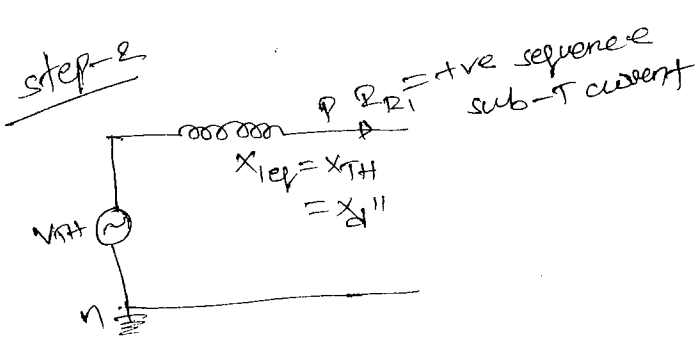 step-2
P I_R1 = +ve sequence
sub-T current
X1eq = XTH
= Xd"
VTH
n